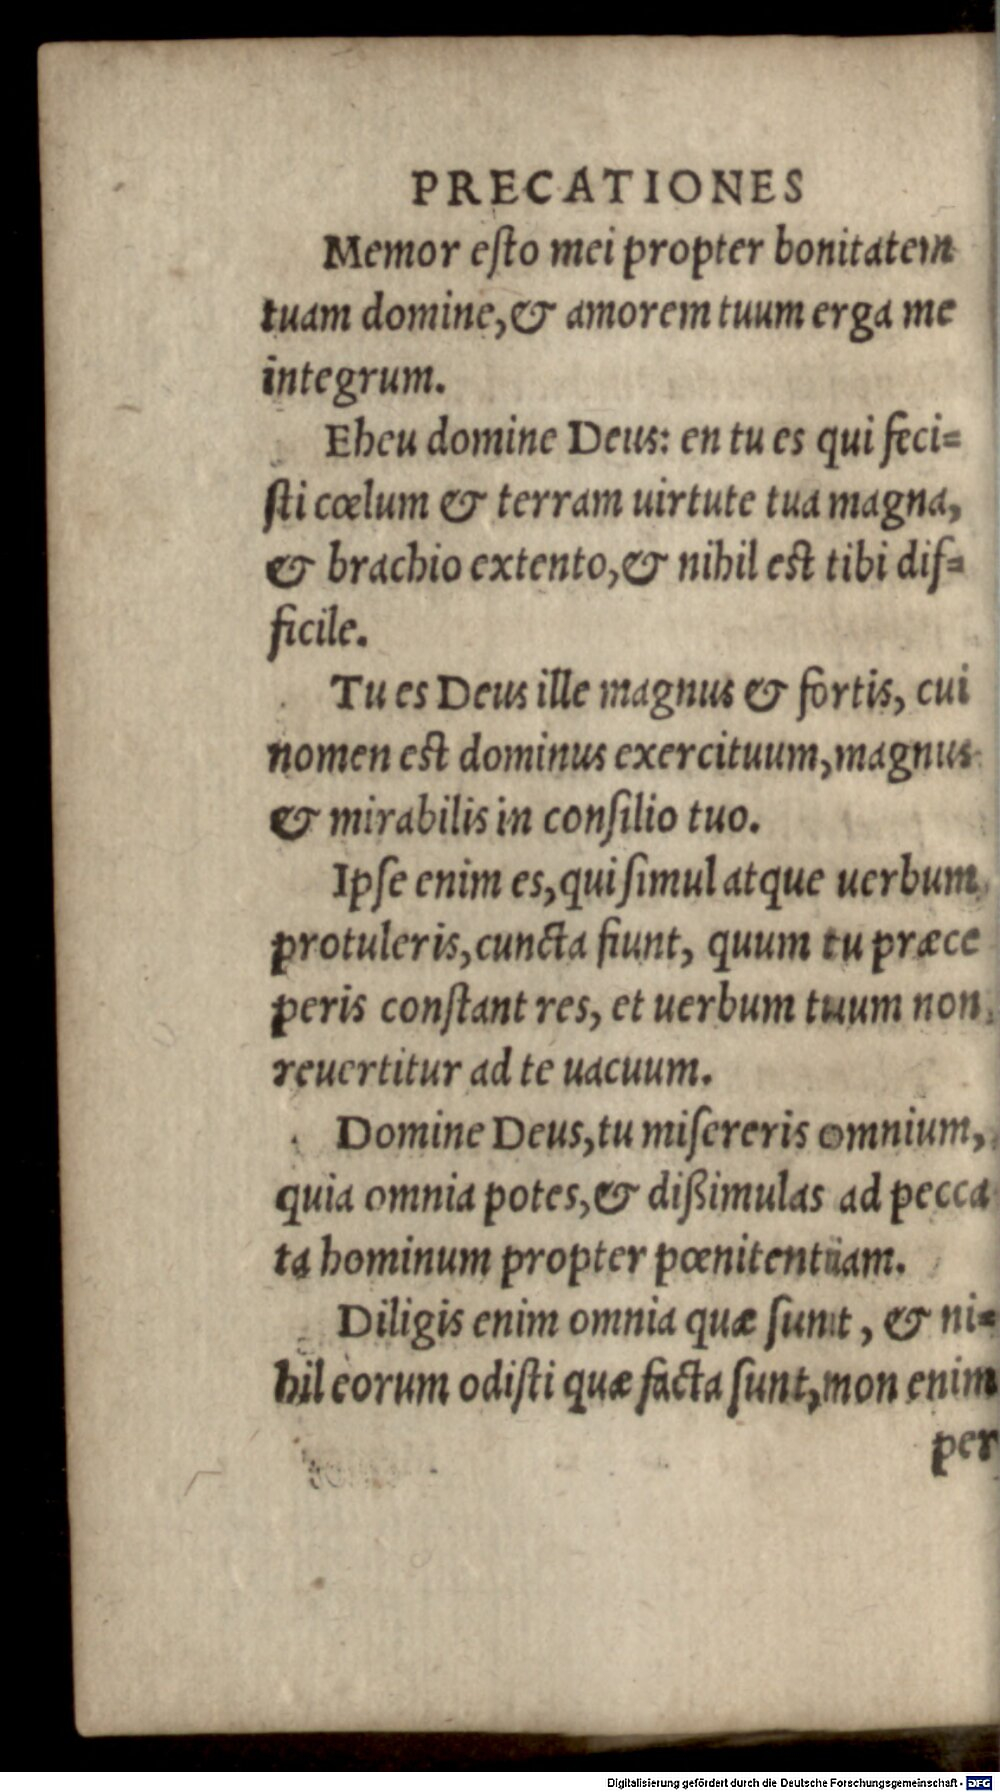 PRECATIONES
Memor eſto mei propter bonitatem
tuam domine,& amorem tuum erga me
integrum.
Eheu domine Deus: en tu es qui feci=
ſti cœlum & terram uirtute tua magna,
& brachio extento,& nihil est tibi dif=
ficile.
Tu es Deus ille magnus & fortis, cui
nomen est dominus exercituum,magnus
& mirabilis in conſilio tuo.
Ipſe enim es,qui ſimul atque uerbum
protuleris,cuncta fiunt, quum tu præce
peris conſtant res, et uerbum tuum non
reuertitur ad te uacuum.
Domine Deus,tu miſereris omnium,
quia omnia potes,& dißimulas ad pecca
ta hominum propter pœnitentiam.
Diligis enim omnia quæ ſunt, & ni=
hil eorum odiſti quæ facta ſunt,non enim
per
Digitalisierung gefördert durch die Deutsche Forschungsgemeinschaft - DFG